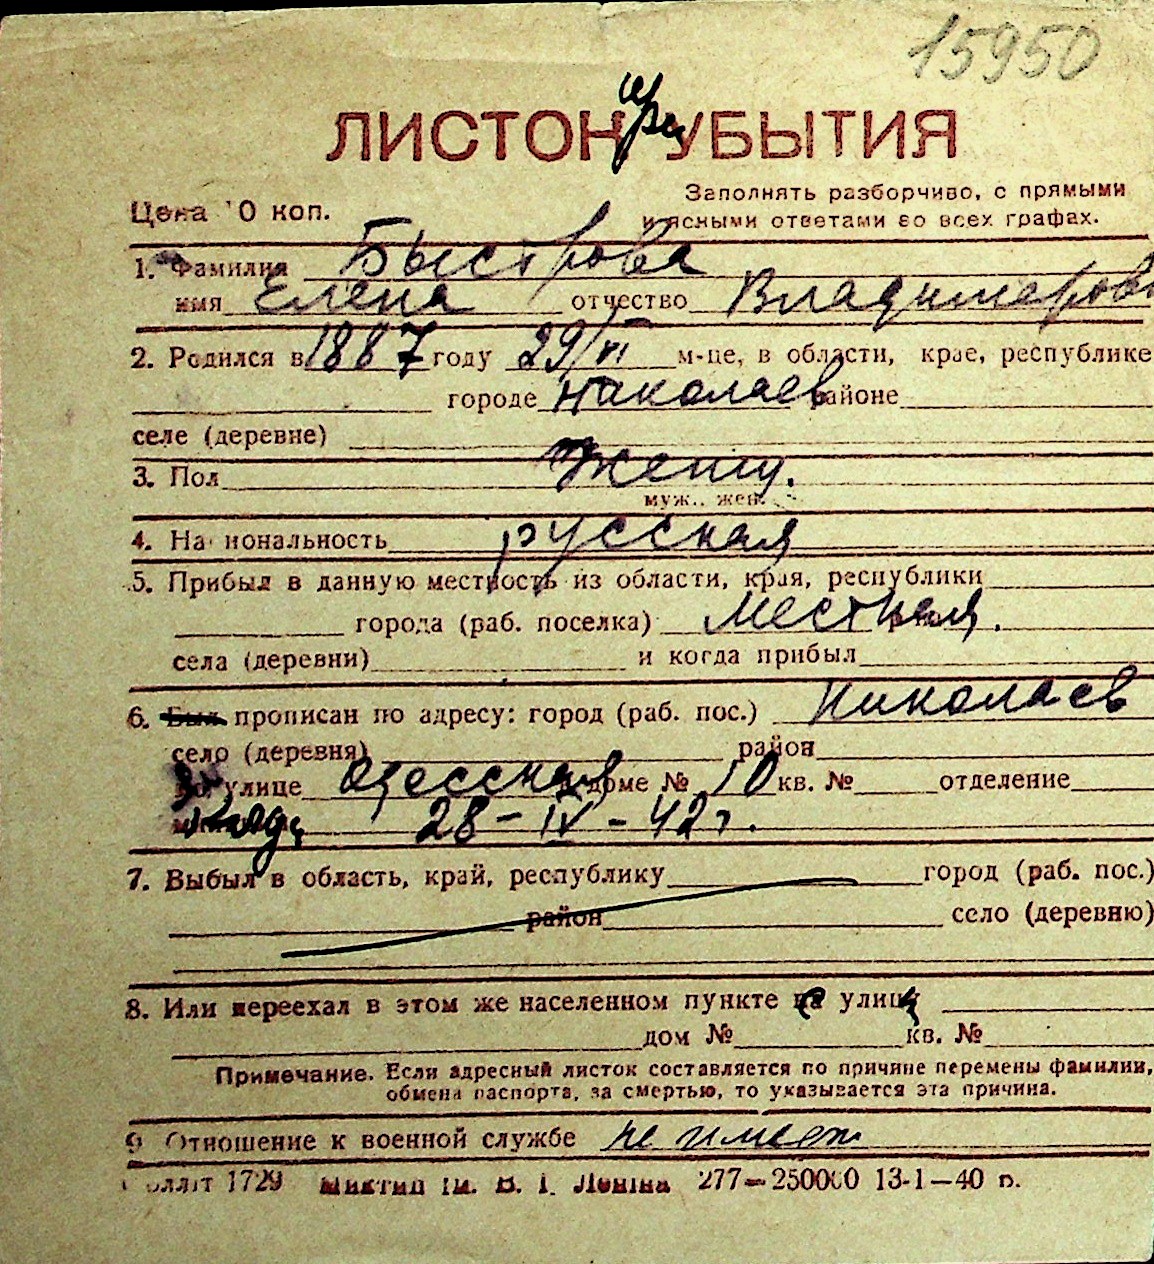 15950
ЛИСТОК УБЫТИЯ
Цена 10 коп.
Заполнять разборчиво, с прямыми
и ясными ответами во всех графах.
1. Фамилия Быстрова
имя Елена отчество Владимеровн
2. Родился в 1887 году 29/VI м-це, в области, крае, республике
городе Николаев районе
селе (деревне)
3. Пол женщ.
муж., жен.
4. Национальность русская
5. Прибыл в данную местность из области, края, республики
города (раб. поселка) местная.
села (деревни) и когда прибыл
6. Был прописан по адресу: город (раб. пос.) Николаев
село (деревня) район
улице Одесская доме № 10 кв. № отделение
28-IV-42 г.
7. Выбыл в область, край, республику город (раб. пос.)
район село (деревню)
8. Или переехал в этом же населенном пункте на улицу
дом № кв. №
Примечание. Если адресный листок составляется по причине перемены фамилии,
обмена паспорта, за смертью, то указывается эта причина.
9 Отношение к военной службе не имеет
1729 ім. В. І. Леніна 277—250000 13-1—40 р.